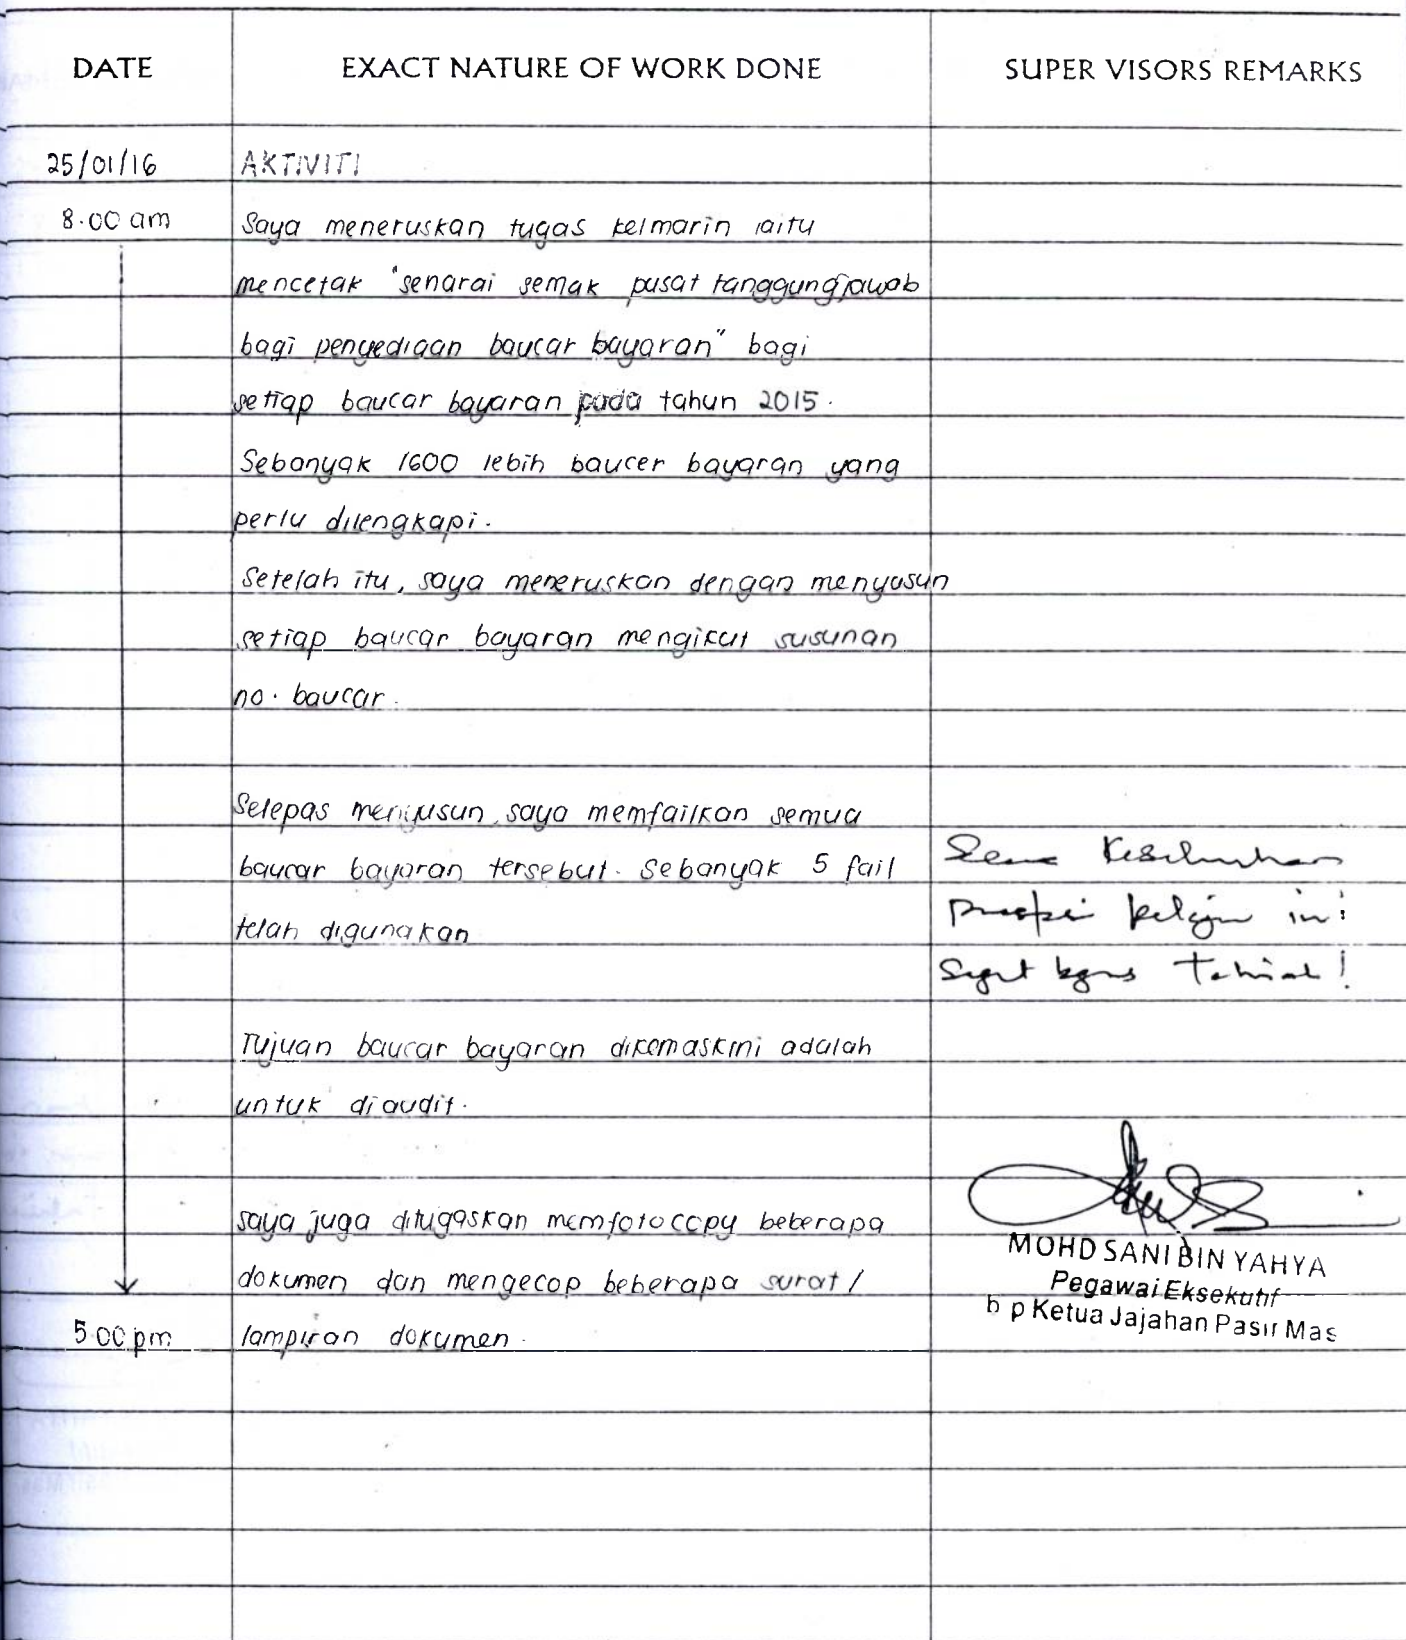 DATE
EXACT NATURE OF WORK DONE
SUPER VISORS REMARKS
25/01/16
AKTIVITI
8.00 am
Saya meneruskan tugas kelmarin iaitu
mencetak "senarai semak pusat tanggungjawab
bagi penyediaan baucar bayaran" bagi
setiap baucar bayaran pada tahun 2015.
Sebanyak 1600 lebih baucer bayaran yang
perlu dilengkapi.
Setelah itu, saya meneruskan dengan menyusun
setiap baucar bayaran mengikut susunan
no. baucar.
Selepas menyusun, saya memfailkan semua
baucar bayaran tersebut. Sebanyak 5 fail
telah digunakan
Secara Keseluruhan
prestasi pelajar ini
Sangat bagus Tahniah!
Tujuan baucar bayaran dikemaskini adalah
untuk diaudit.
saya juga ditugaskan memfotocopy beberapa
dokumen dan mengecop beberapa surat/
5.00 pm
lampiran dokumen.
MOHD SANI BIN YAHYA
Pegawai Eksekutif
b p Ketua Jajahan Pasir Mas